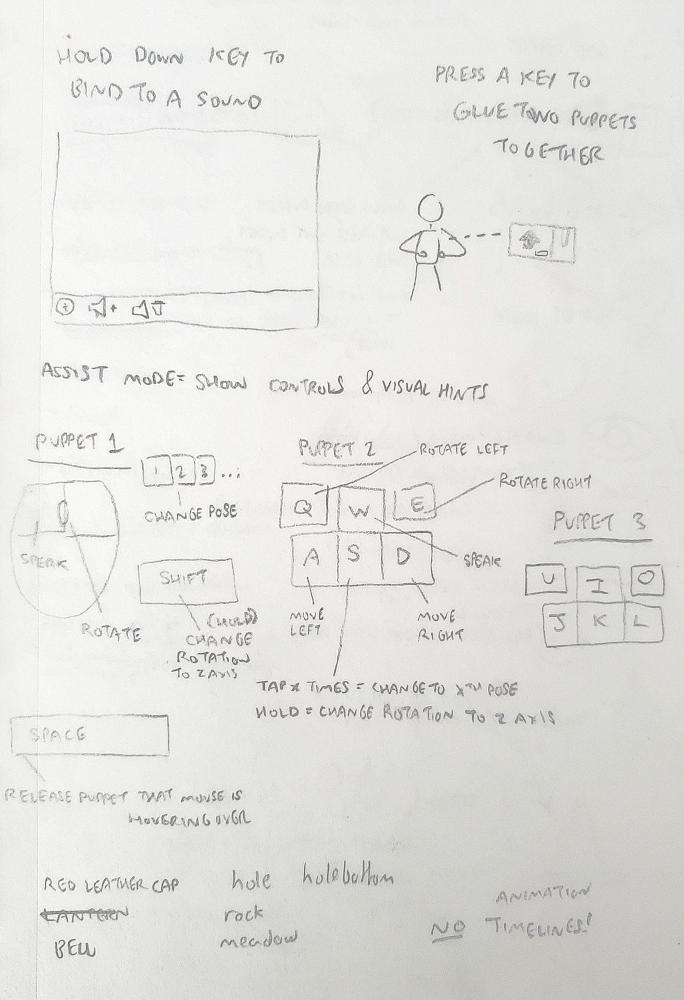 HOLD DOWN KEY TO
BIND TO A SOUND
PRESS A KEY TO
GLUE TWO PUPPETS
TOGETHER
ASSIST MODE = SHOW CONTROLS & VISUAL HINTS
PUPPET 1
1 2 3 ...
CHANGE POSE
SPEAK
ROTATE
SHIFT
(HOLD)
CHANGE
ROTATION
TO Z AXIS
PUPPET 2
ROTATE LEFT
ROTATE RIGHT
Q W E
A S D
SPEAK
MOVE
LEFT
MOVE
RIGHT
TAP X TIMES = CHANGE TO XTH POSE
HOLD = CHANGE ROTATION TO Z AXIS
PUPPET 3
U I O
J K L
SPACE
RELEASE PUPPET THAT MOUSE IS
HOVERING OVER
RED LEATHER CAP
LANTERN
BELL
hole holebottom
rock
meadow
ANIMATION
NO TIMELINES!